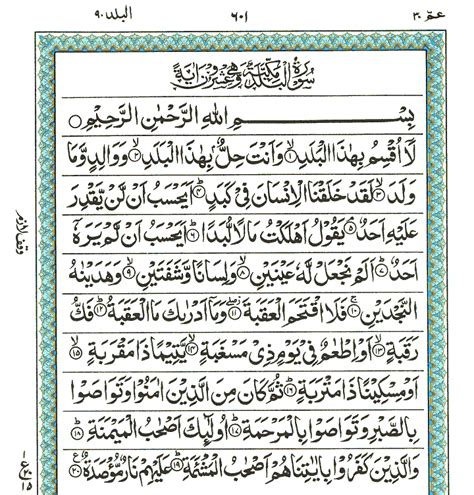 عمّ ٣٠
٦٠١
البلد ٩٠
سُوۡرَةُ الۡبَلَدِ مَكِّيَّةٌ وَّهِيَ عِشۡرُوۡنَ اٰيَةً
بِسۡمِ اللّٰهِ الرَّحۡمٰنِ الرَّحِيۡمِ
لَاۤ اُقۡسِمُ بِهٰذَا الۡبَلَدِ ۙ‏﴿۱﴾ وَاَنۡتَ حِلٌّۢ بِهٰذَا الۡبَلَدِ ۙ‏﴿۲﴾ وَوَالِدٍ وَّمَا
وَلَدَ ۙ‏﴿۳﴾ لَقَدۡ خَلَقۡنَا الۡاِنۡسَانَ فِىۡ كَبَدٍ ؕ‏﴿۴﴾ اَيَحۡسَبُ اَنۡ لَّنۡ يَّقۡدِرَ
عَلَيۡهِ اَحَدٌ‌ ۘ‏﴿۵﴾ يَقُوۡلُ اَهۡلَكۡتُ مَالًا لُّبَدًا ؕ‏﴿۶﴾ اَيَحۡسَبُ اَنۡ لَّمۡ يَرَهٗۤ
اَحَدٌ ؕ‏﴿۷﴾ اَلَمۡ نَجۡعَلۡ لَّهٗ عَيۡنَيۡنِ ۙ‏﴿۸﴾ وَلِسَانًا وَّشَفَتَيۡنِ ۙ‏﴿۹﴾ وَهَدَيۡنٰهُ
النَّجۡدَيۡنِ‌ ۚ‏﴿۱۰﴾ فَلَا اقۡتَحَمَ الۡعَقَبَةَ ۖ‏﴿۱۱﴾ وَمَاۤ اَدۡرٰٮكَ مَا الۡعَقَبَةُ ؕ‏﴿۱۲﴾ فَكُّ
رَقَبَةٍ ۙ‏﴿۱۳﴾ اَوۡ اِطۡعٰمٌ فِىۡ يَوۡمٍ ذِىۡ مَسۡغَبَةٍ ۙ‏﴿۱۴﴾ يَّتِيۡمًا ذَا مَقۡرَبَةٍ ۙ‏﴿۱۵﴾
اَوۡ مِسۡكِيۡنًا ذَا مَتۡرَبَةٍ ؕ‏﴿۱۶﴾ ثُمَّ كَانَ مِنَ الَّذِيۡنَ اٰمَنُوۡا وَتَوَاصَوۡا
بِالصَّبۡرِ وَتَوَاصَوۡا بِالۡمَرۡحَمَةِ ؕ‏﴿۱۷﴾ اُولٰٓٮِٕكَ اَصۡحٰبُ الۡمَيۡمَنَةِ ؕ‏﴿۱۸﴾
وَالَّذِيۡنَ كَفَرُوۡا بِاٰيٰتِنَا هُمۡ اَصۡحٰبُ الۡمَشۡـَٔـمَةِ ؕ‏﴿۱۹﴾ عَلَيۡهِمۡ نَارٌ مُّؤۡصَدَةٌ‏﴿۲۰﴾
وقف لازم
ع
١٥